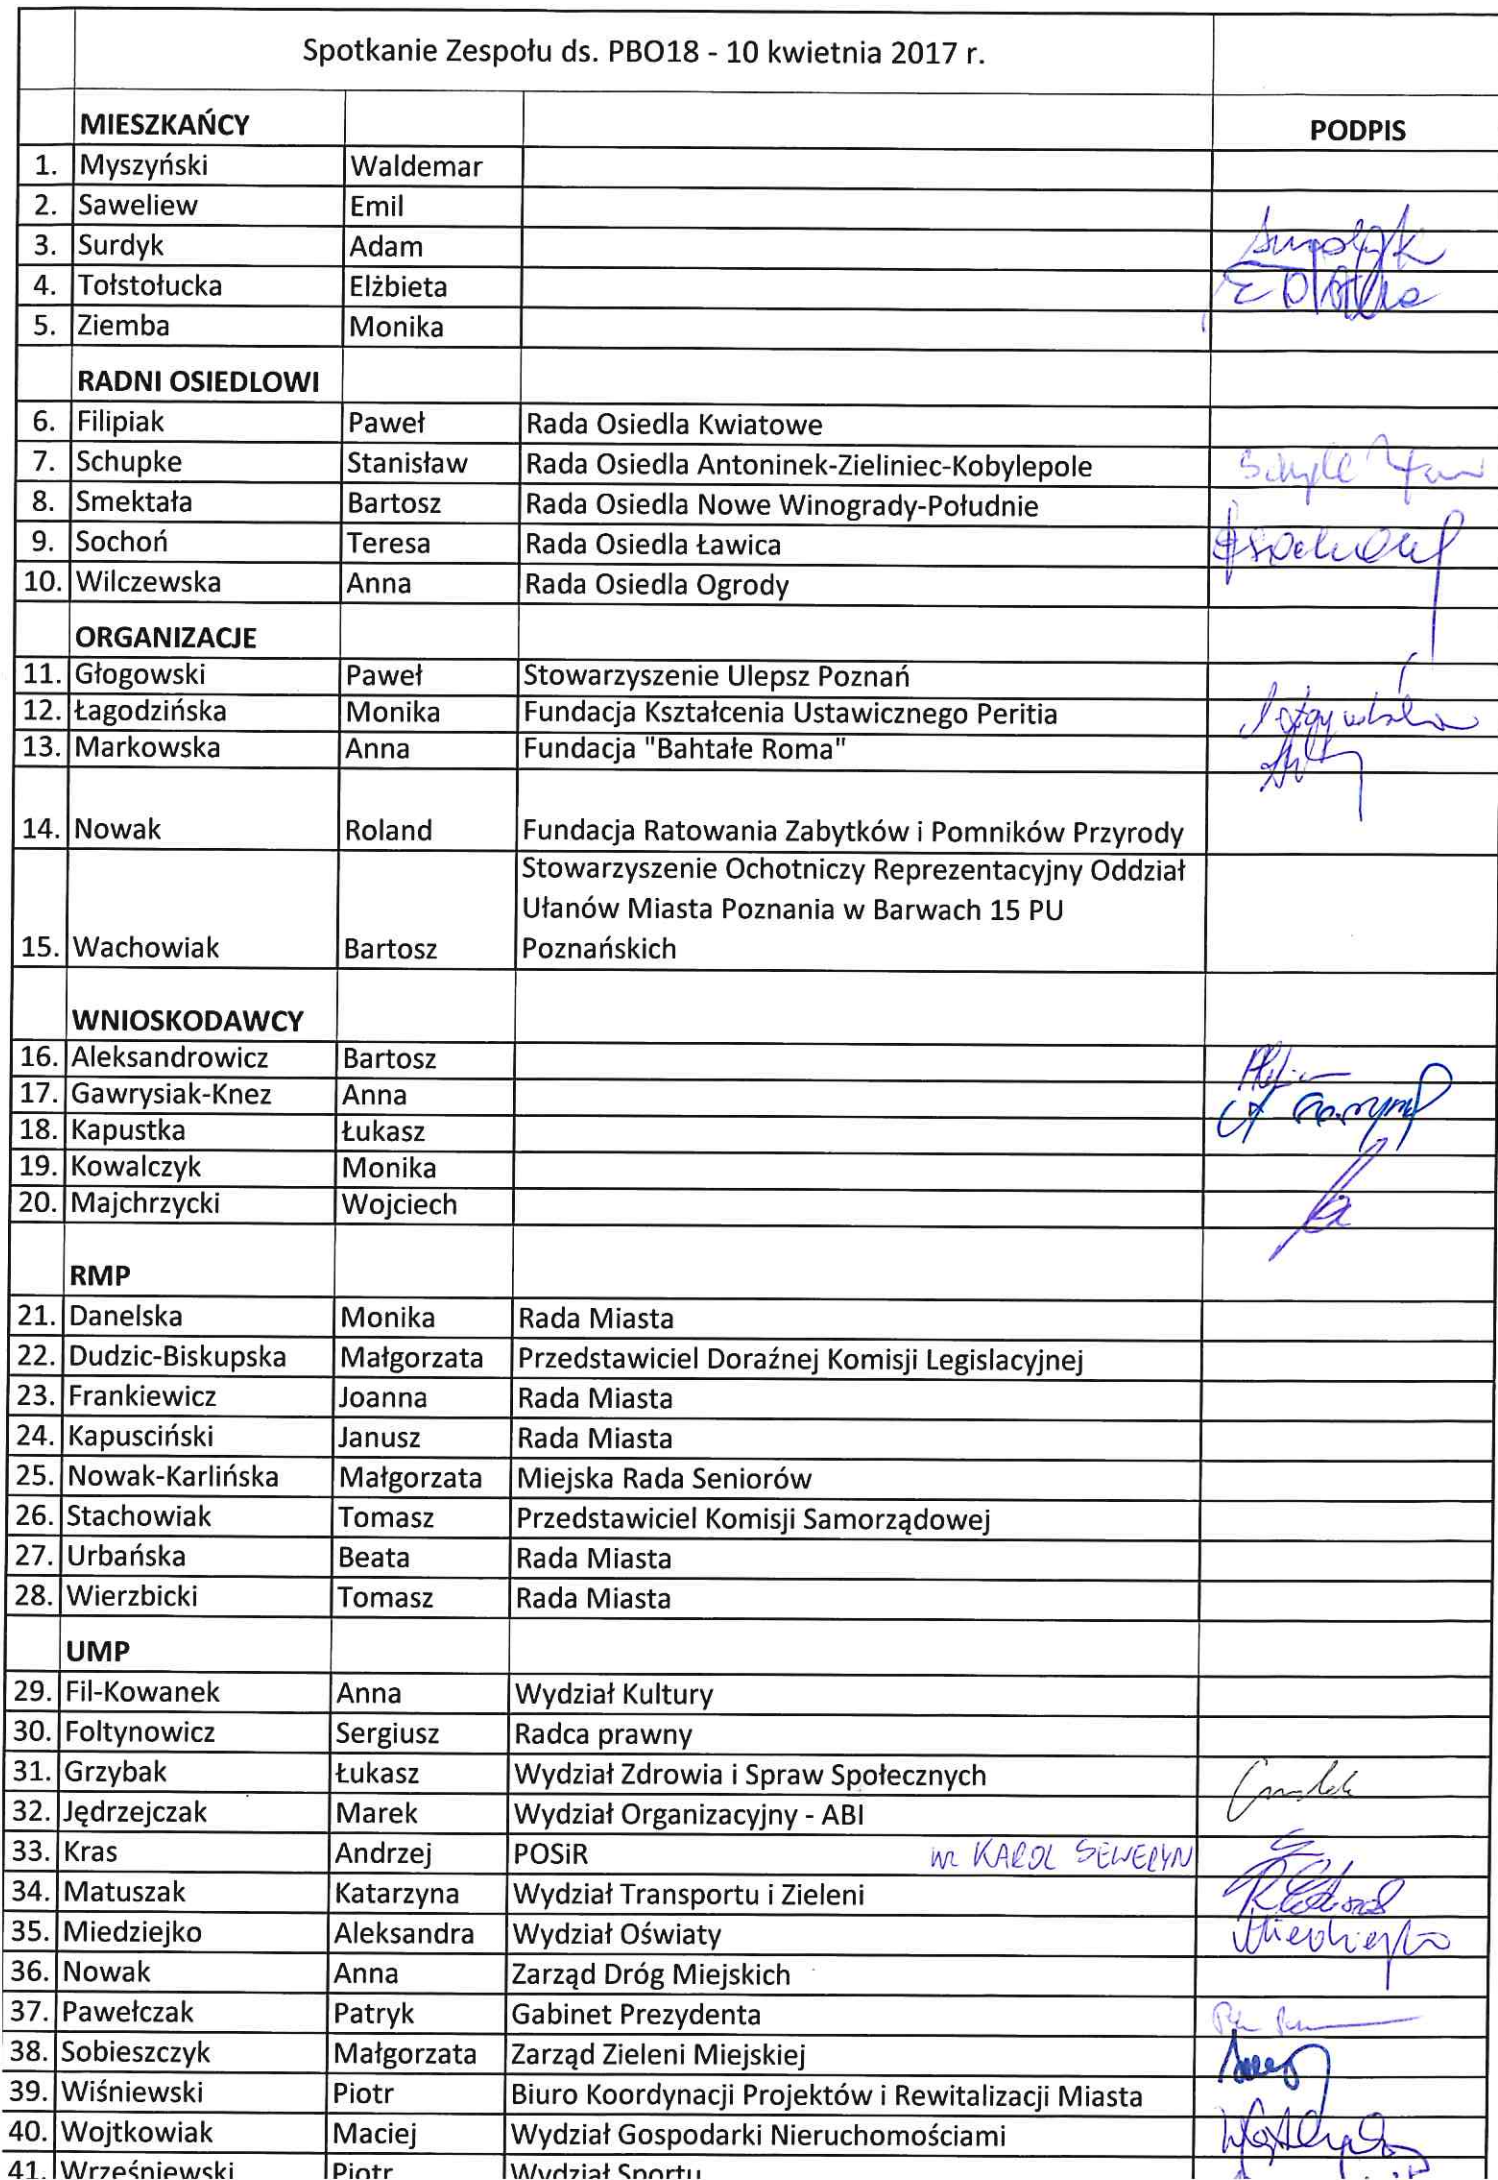 Spotkanie Zespołu ds. PBO18 - 10 kwietnia 2017 r.
MIESZKAŃCY PODPIS
1. Myszyński Waldemar
2. Saweliew Emil
3. Surdyk Adam
4. Tołstołucka Elżbieta
5. Ziemba Monika
RADNI OSIEDLOWI
6. Filipiak Paweł Rada Osiedla Kwiatowe
7. Schupke Stanisław Rada Osiedla Antoninek-Zieliniec-Kobylepole
8. Smektała Bartosz Rada Osiedla Nowe Winogrady-Południe
9. Sochoń Teresa Rada Osiedla Ławica
10. Wilczewska Anna Rada Osiedla Ogrody
ORGANIZACJE
11. Głogowski Paweł Stowarzyszenie Ulepsz Poznań
12. Łagodzińska Monika Fundacja Kształcenia Ustawicznego Peritia
13. Markowska Anna Fundacja "Bahtałe Roma"
14. Nowak Roland Fundacja Ratowania Zabytków i Pomników Przyrody
Stowarzyszenie Ochotniczy Reprezentacyjny Oddział
Ułanów Miasta Poznania w Barwach 15 PU
15. Wachowiak Bartosz Poznańskich
WNIOSKODAWCY
16. Aleksandrowicz Bartosz
17. Gawrysiak-Knez Anna
18. Kapustka Łukasz
19. Kowalczyk Monika
20. Majchrzycki Wojciech
RMP
21. Danelska Monika Rada Miasta
22. Dudzic-Biskupska Małgorzata Przedstawiciel Doraźnej Komisji Legislacyjnej
23. Frankiewicz Joanna Rada Miasta
24. Kapusciński Janusz Rada Miasta
25. Nowak-Karlińska Małgorzata Miejska Rada Seniorów
26. Stachowiak Tomasz Przedstawiciel Komisji Samorządowej
27. Urbańska Beata Rada Miasta
28. Wierzbicki Tomasz Rada Miasta
UMP
29. Fil-Kowanek Anna Wydział Kultury
30. Foltynowicz Sergiusz Radca prawny
31. Grzybak Łukasz Wydział Zdrowia i Spraw Społecznych
32. Jędrzejczak Marek Wydział Organizacyjny - ABI
33. Kras Andrzej POSiR KAROL SEWERYN
34. Matuszak Katarzyna Wydział Transportu i Zieleni
35. Miedziejko Aleksandra Wydział Oświaty Miedziejko
36. Nowak Anna Zarząd Dróg Miejskich
37. Pawełczak Patryk Gabinet Prezydenta
38. Sobieszczyk Małgorzata Zarząd Zieleni Miejskiej
39. Wiśniewski Piotr Biuro Koordynacji Projektów i Rewitalizacji Miasta
40. Wojtkowiak Maciej Wydział Gospodarki Nieruchomościami
41. Wrześniewski Piotr Wydział Sportu